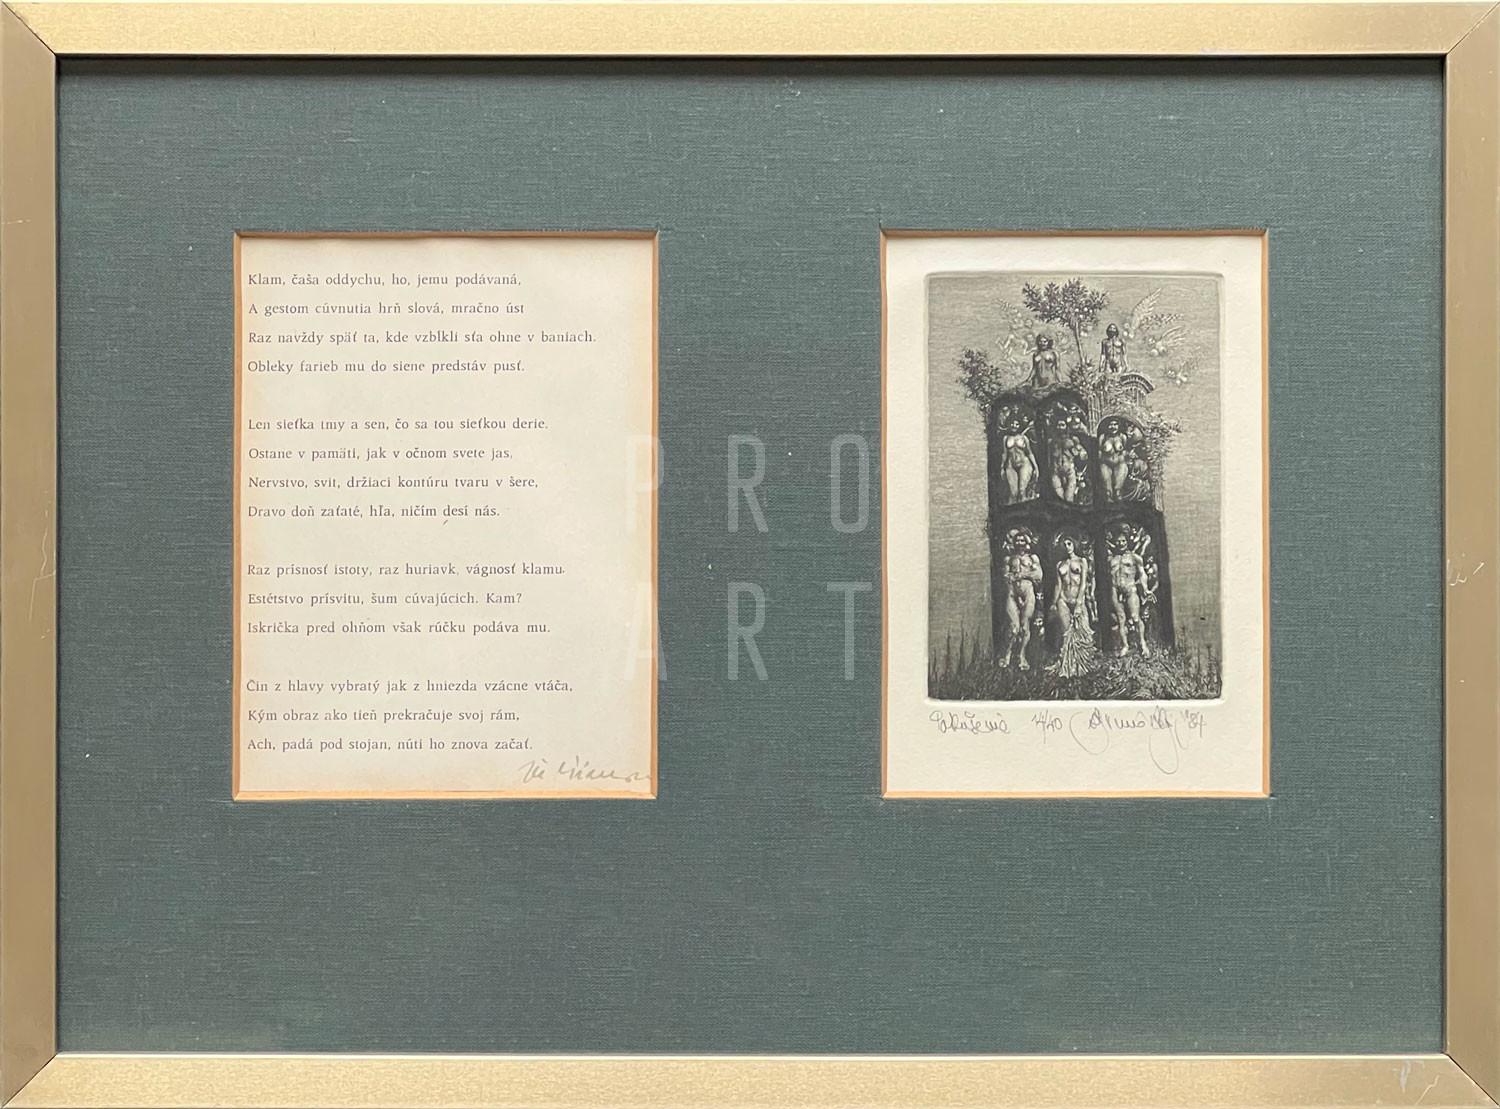 Klam, čaša oddychu, ho, jemu podávaná,
A gestom cúvnutia hrň slová, mračno úst
Raz navždy späť ta, kde vzblkli sťa ohne v baniach.
Obleky farieb mu do siene predstáv pusť.
Len sieťka tmy a sen, čo sa tou sieťkou derie.
Ostane v pamäti, jak v očnom svete jas,
Nervstvo, svit, držiaci kontúru tvaru v šere,
Dravo doň zaťaté, hľa, ničím desí nás.
Raz prísnosť istoty, raz huriavk, vágnosť klamu.
Estétstvo prísvitu, šum cúvajúcich. Kam?
Iskrička pred ohňom však rúčku podáva mu.
Čin z hlavy vybratý jak z hniezda vzácne vtáča,
Kým obraz ako tieň prekračuje svoj rám,
Ach, padá pod stojan, núti ho znova začať.
PRO
ART
Pokušenie '84